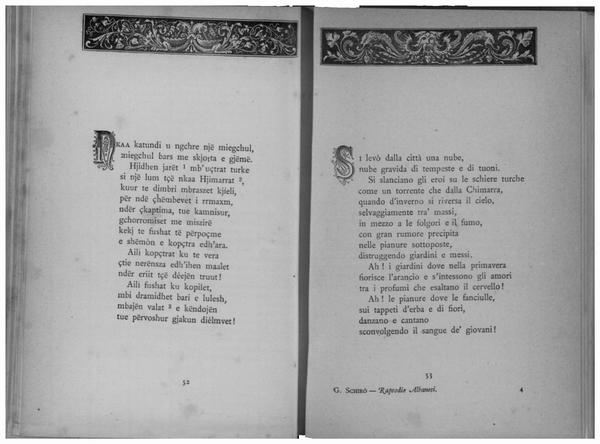 NKAA katundi u ngchre një miegchul,
miegchul bars me skjota e gjëmë.
Hjidhen jarët ¹ mb'uçtrat turke
si një lum tçë nkaa Hjimarrat ²,
kuur te dimbri mbraszet kjieli,
për ndë çhëmbevet i rrmaxm,
ndër çkaptima, tue kamnisur,
gchorromiset me miszirë
kekj te fushat të përpoçme
e shëmòn e kopçtra edh'ara.
Aili kopçtrat ku te vera
çtie nerënsza edh'ihen maalet
ndër eriit tçë dëejën truut!
Aili fushat ku kopilet,
mbi dramidhet bari e lulesh,
mbajën valat ³ e këndojën
tue përvoshur gjakun diélmvet!
52
SI levò dalla città una nube,
nube gravida di tempeste e di tuoni.
Si slanciano gli eroi su le schiere turche
come un torrente che dalla Chimarra,
quando d'inverno si riversa il cielo,
selvaggiamente tra' massi,
in mezzo a le folgori e il fumo,
con gran rumore precipita
nelle pianure sottoposte,
distruggendo giardini e messi.
Ah! i giardini dove nella primavera
fiorisce l'arancio e s'intessono gli amori
tra i profumi che esaltano il cervello!
Ah! le pianure dove le fanciulle,
sui tappeti d'erba e di fiori,
danzano e cantano
sconvolgendo il sangue de' giovani!
53
G. SCHIRÒ — Rapsodie Albanesi. 4